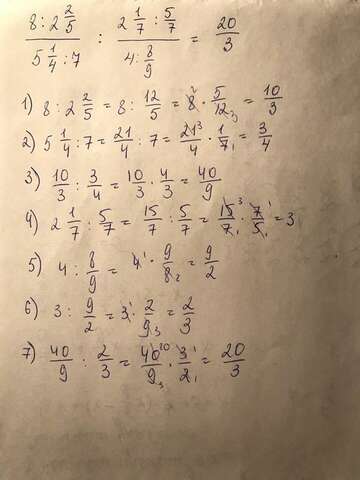 (8 : 2 2/5)/(5 1/4 : 7) : (2 1/7 : 5/7)/(4 : 8/9) = 20/3
1) 8 : 2 2/5 = 8 : 12/5 = 8² · 5/12₃ = 10/3
2) 5 1/4 : 7 = 21/4 : 7 = 21³/4 · 1/7₁ = 3/4
3) 10/3 : 3/4 = 10/3 · 4/3 = 40/9
4) 2 1/7 : 5/7 = 15/7 : 5/7 = 15³/7₁ · 7¹/5₁ = 3
5) 4 : 8/9 = 4¹ · 9/8₂ = 9/2
6) 3 : 9/2 = 3¹ · 2/9₃ = 2/3
7) 40/9 : 2/3 = 40²⁰/9₃ · 3¹/2₁ = 20/3